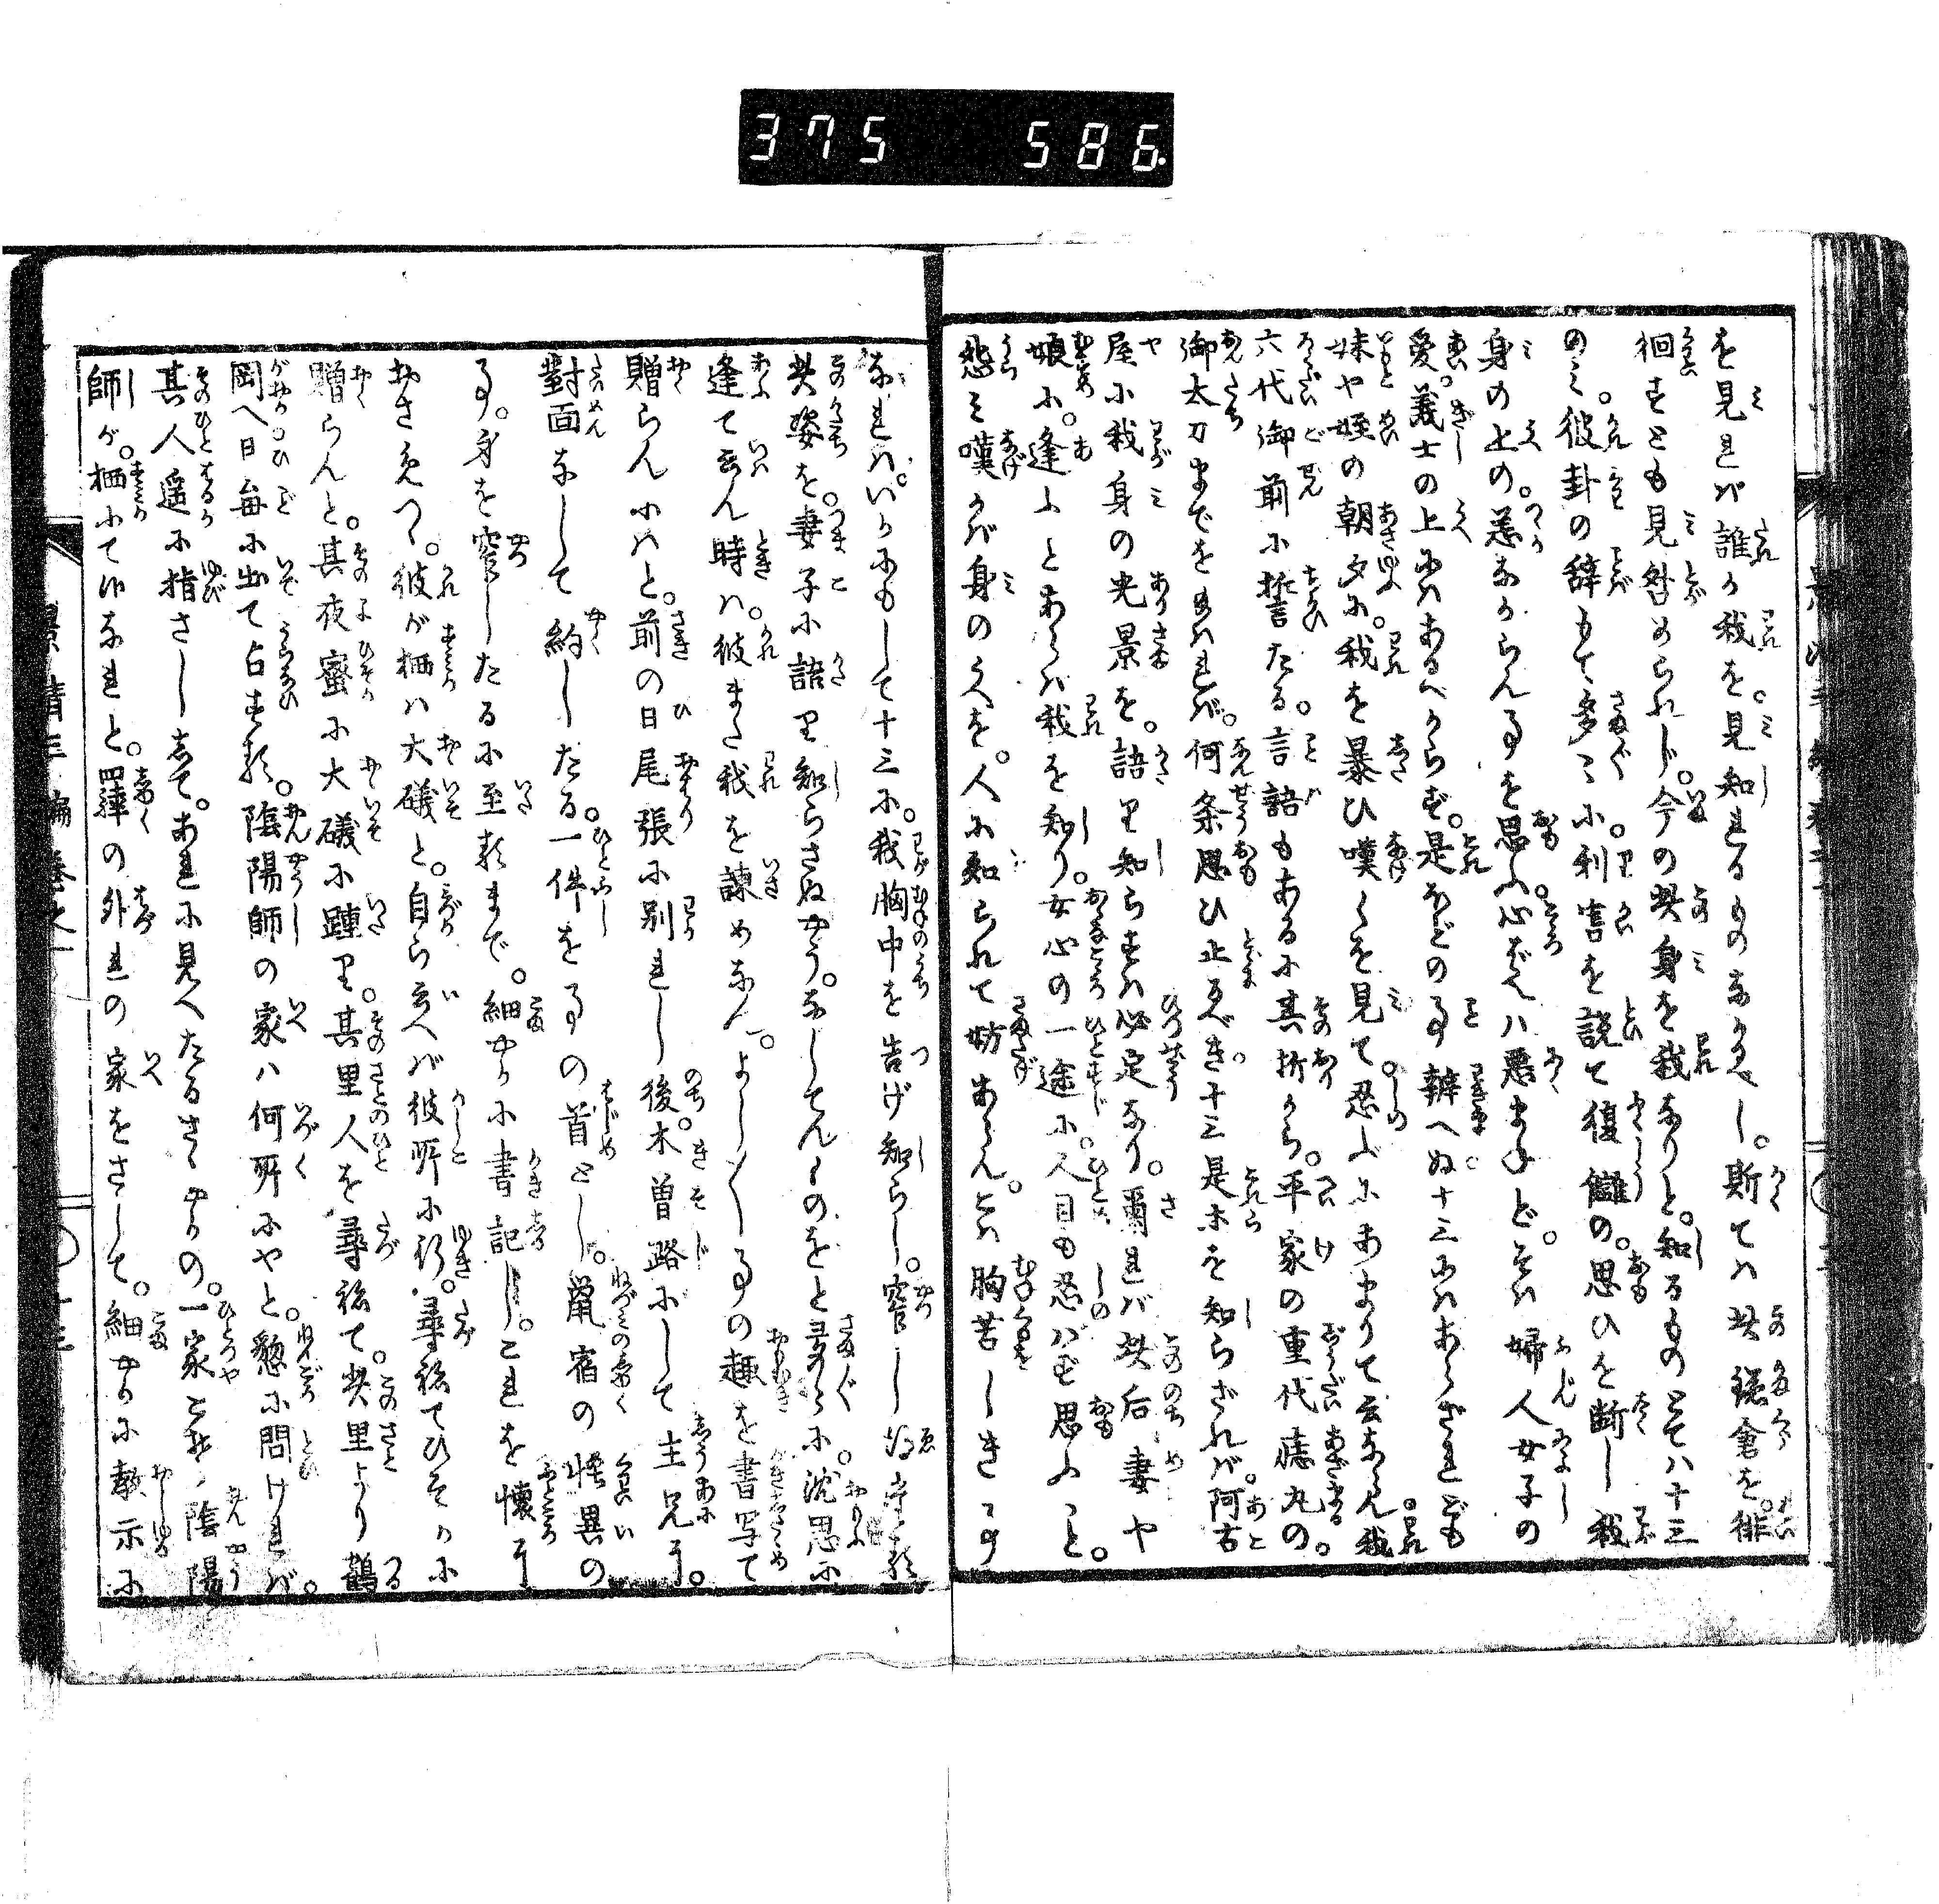 375 586
を見れば誰か我を。見知れるものなかるべし。斯ては此鎌倉を。徘
徊すとも見咎められじ。今の此身を我なりと。知るものとては十三
のみ。彼卦の辞もて多々に。利害を説て復讐の。思ひを断し我
身の上の。恙なからん事を思ふ。心ばへハ悪まねど。そは婦人女子の
愛。義士の上にはあるべからず。是ほどの事辨へぬ。十三にはあらざれども
妹や姪の朝夕に。我を慕ひ嘆くを見て。忍ふにあまりて云なん。我
六代御前に誓たる。言語もあるに其折から。平家の重代痣丸の。
御太刀までを給はれば。何条思ひ止るべき。十三是等を知らざれば。阿古
屋に我身の光景を。語り知らすは必定なり。爾れば此后妻や
娘に。逢ふとあらは我を知り。女心の一途に。人目も忍ばず思ふこと。
怨み嘆かば身のうへを。人に知られて妨あらん。とは胸苦しき事
なれは。いかにもして十三に。我胸中を告げ知らし。窶し
此姿を。妻子に語り知らさぬやう。なしてんものをとさま〲に。沈思に
逢て云ん時は。彼また我を諌めなん。よし〳〵事の趣を書写て
贈らんにはと。前の日尾張に別れし後。木曽路にして主兄に。
對面なして約したる。一件を事の首とし。鼠宿の怪異の
事。身を窶したるに至るまで。細やかに書記し。これを懐に
おさめつゝ。彼が栖は大磯と。自ら云へば彼所に行。尋ねてひそかに
贈らんと。其夜蜜に大磯に踵り。其里人を尋ねて。此里より鶴
岡へ日毎に出て占する。陰陽師の家ハ何所にやと。懇に問ければ。
其人遥に指さしして。あれに見へたるさゝやかの。一家こそ陰陽
師が。栖にて候なれと。驛の外れの家をさして。細やかに教示に
景清三編巻之一